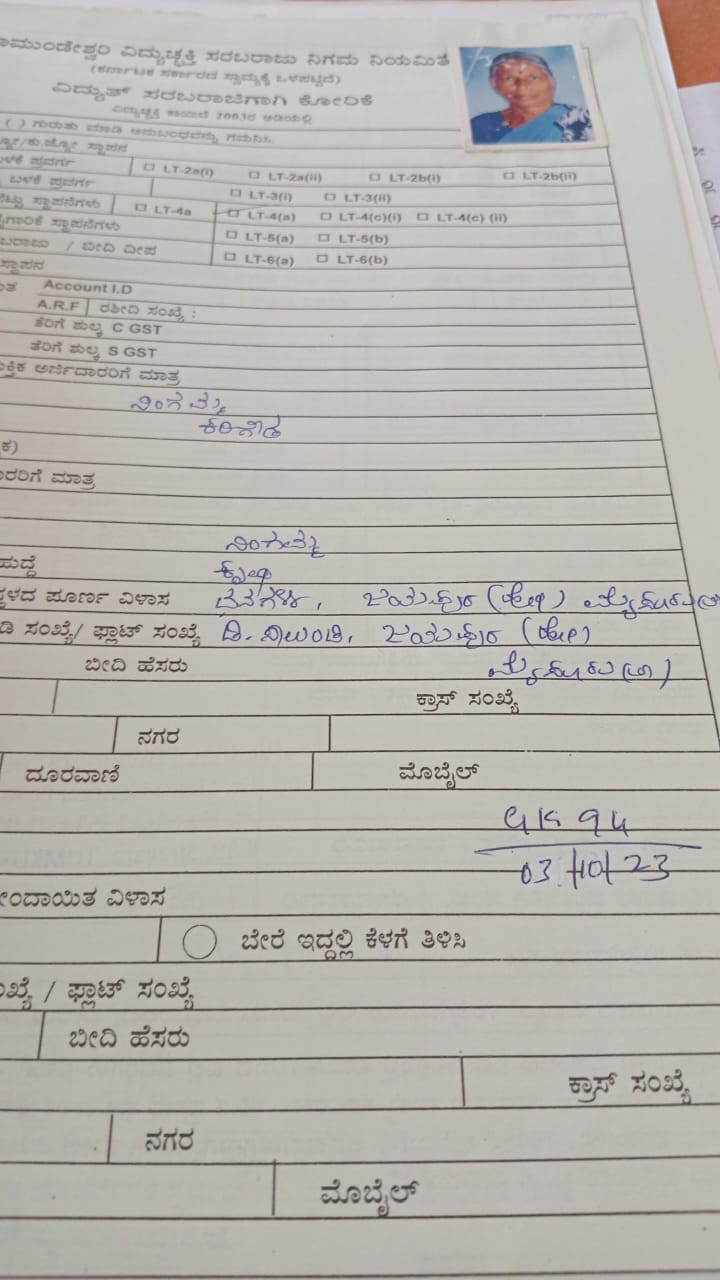 ಾಮುಂಡೇಶ್ವರಿ ವಿದ್ಯುಚ್ಛಕ್ತಿ ಸರಬರಾಜು ನಿಗಮ ನಿಯಮಿತ
(ಕರ್ನಾಟಕ ಸರ್ಕಾರದ ಸ್ವಾಮ್ಯಕ್ಕೆ ಒಳಪಟ್ಟಿದೆ)
ವಿದ್ಯುತ್ ಸರಬರಾಜಿಗಾಗಿ ಕೋರಿಕೆ
ವಿದ್ಯುಚ್ಛಕ್ತಿ ಕಾಯಿದೆ 2003ರ ಅಡಿಯಲ್ಲಿ
( ) ಗುರುತು ಮಾಡಿ ಅನುಬಂಧವನ್ನು ಗಮನಿಸಿ
ಸ್ಥಾಪನ
ಬಳಕೆ ಪ್ರವರ್ಗ LT-2a(i) LT-2a(ii) LT-2b(i) LT-2b(ii)
ಬಳಕೆ ಪ್ರವರ್ಗ LT-3(i) LT-3(ii)
ಸ್ಥಾಪನೆಗಳು LT-4a LT-4(a) LT-4(c)(i) LT-4(c) (ii)
ಗಾರಿಕೆ ಸ್ಥಾಪನೆಗಳು LT-5(a) LT-5(b)
ಬರಾಜು / ಬೀದಿ ದೀಪ LT-6(a) LT-6(b)
ಸ್ಥಾಪನ
Account I.D
A.R.F ರಶೀದಿ ಸಂಖ್ಯೆ :
ತೆರಿಗೆ ಶುಲ್ಕ C GST
ತೆರಿಗೆ ಶುಲ್ಕ S GST
ಕ್ತಿಕ ಅರ್ಜಿದಾರರಿಗೆ ಮಾತ್ರ
ನಿಂಗಮ್ಮ
ಕರಿಗೌಡ
ಕ)
ಾರರಿಗೆ ಮಾತ್ರ
ನಿಂಗಮ್ಮ
ಹುದ್ದೆ ಕೃಷಿ
ಸ್ಥಳದ ಪೂರ್ಣ ವಿಳಾಸ ಜಯಪುರ (ಹೋ) ಮೈಸೂರು
ಡಿ ಸಂಖ್ಯೆ/ ಫ್ಲಾಟ್ ಸಂಖ್ಯೆ ಜಯಪುರ (ಹೋ)
ಬೀದಿ ಹೆಸರು ಮೈಸೂರು (ತಾ)
ಕ್ರಾಸ್ ಸಂಖ್ಯೆ
ನಗರ
ದೂರವಾಣಿ ಮೊಬೈಲ್
03/10/23
ೋಂದಾಯಿತ ವಿಳಾಸ
ಬೇರೆ ಇದ್ದಲ್ಲಿ ಕೆಳಗೆ ತಿಳಿಸಿ
ಖ್ಯೆ / ಫ್ಲಾಟ್ ಸಂಖ್ಯೆ
ಬೀದಿ ಹೆಸರು
ಕ್ರಾಸ್ ಸಂಖ್ಯೆ
ನಗರ
ಮೊಬೈಲ್